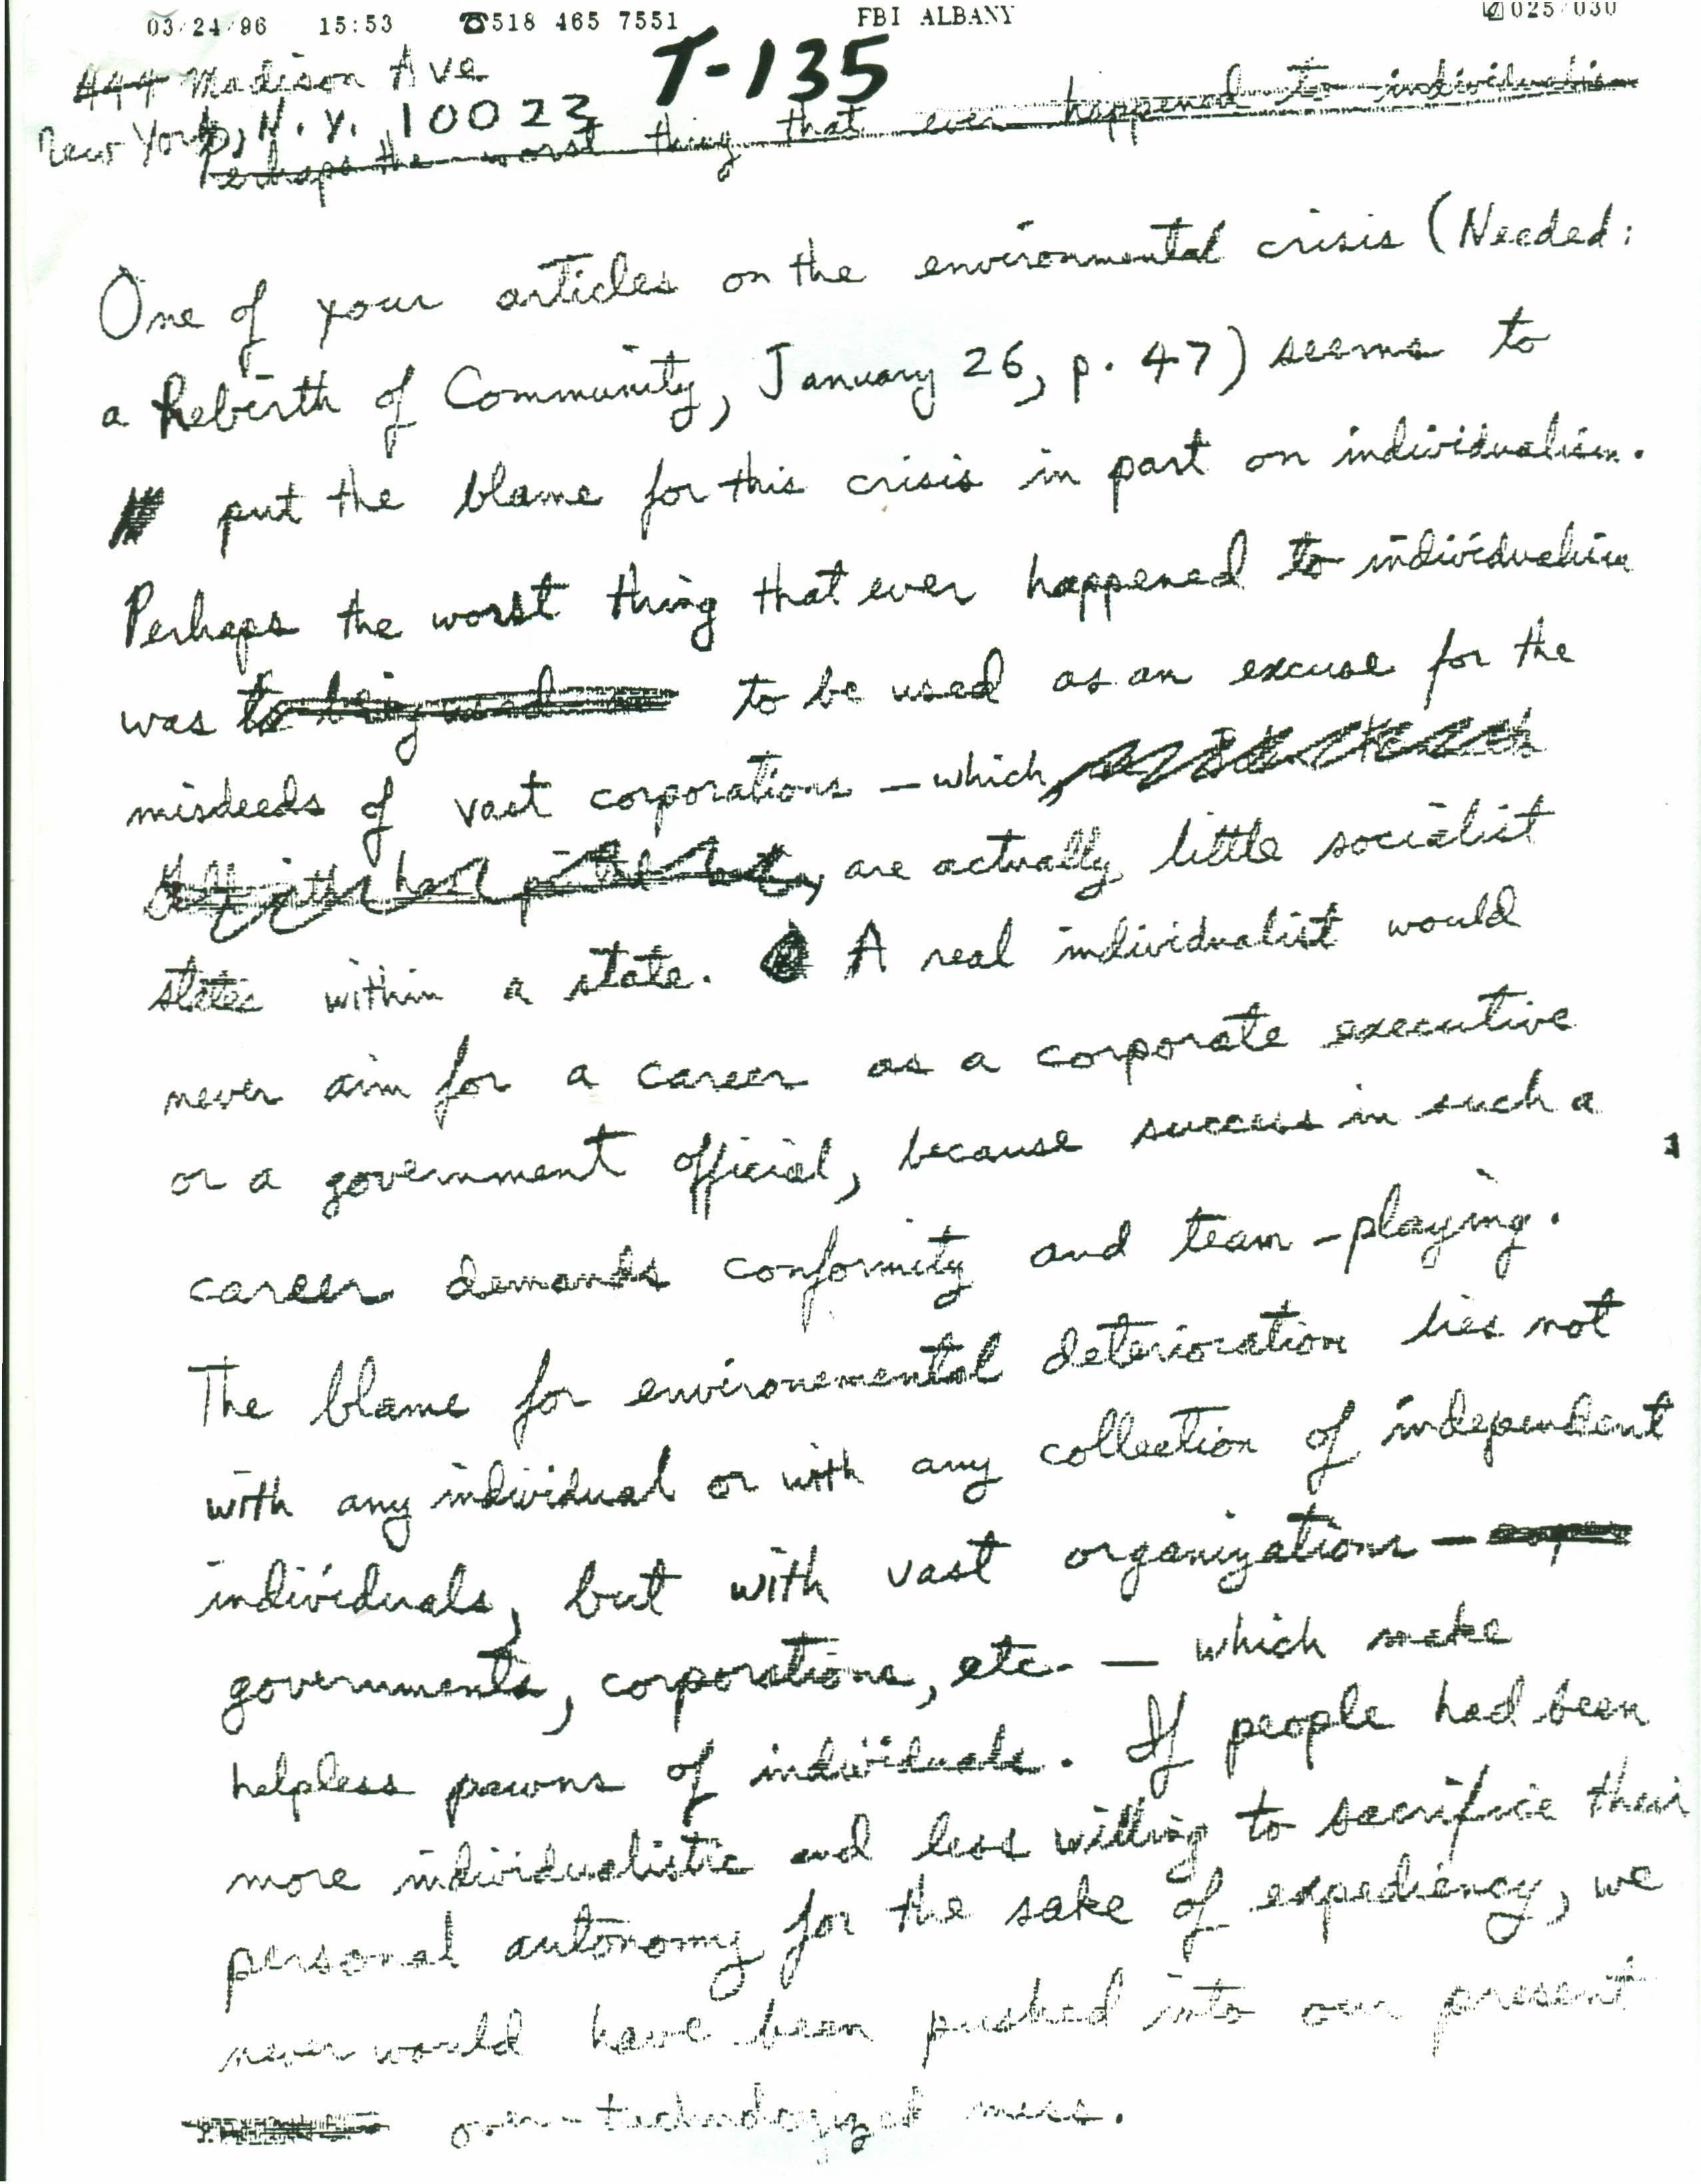 03/24/96 15:53 ☎518 465 7551 FBI ALBANY 025/030
T-135
444 Madison Ave
New York, N.Y. 10022
Perhaps the worst thing that ever happened to individualism
One of your articles on the environmental crisis (Needed:
a Rebirth of Community, January 26, p. 47) seems to
put the blame for this crisis in part on individualism.
Perhaps the worst thing that ever happened to individualism
was to being used to be used as an excuse for the
misdeeds of vast corporations — which,
, are actually little socialist
states within a state. A real individualist would
never aim for a career as a corporate executive
or a government official, because success in such a
career demands conformity and team-playing.
The blame for environemental deterioration lies not
with any individual or with any collection of independent
individuals, but with vast organizations —
governments, corporations, etc. — which make
helpless pawns of individuals. If people had been
more individualistic and less willing to sacrifice their
personal autonomy for the sake of expediency, we
never would have been pushed into our present
over-technologized mess.